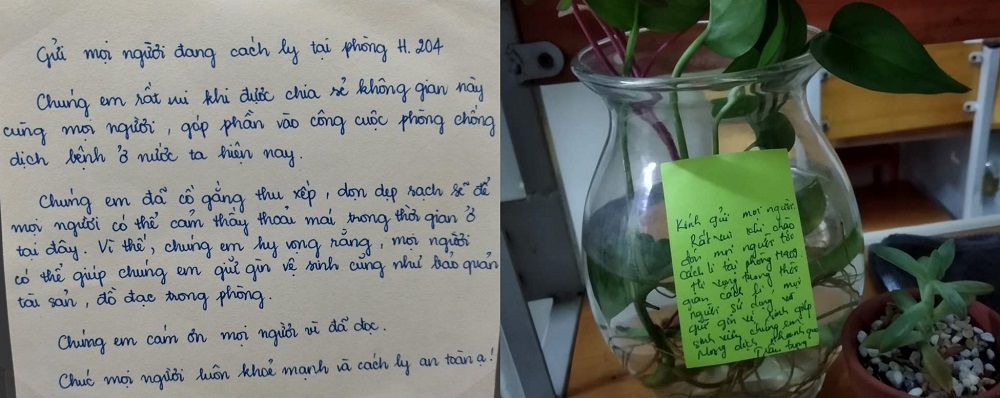 Gửi mọi người đang cách ly tại phòng H. 204
Chúng em rất vui khi được chia sẻ không gian này
cùng mọi người, góp phần vào công cuộc phòng chống
dịch bệnh ở nước ta hiện nay.
Chúng em đã cố gắng thu xếp, dọn dẹp sạch sẽ để
mọi người có thể cảm thấy thoải mái trong thời gian ở
tại đây. Vì thế, chúng em hy vọng rằng, mọi người
có thể giúp chúng em giữ gìn vệ sinh cũng như bảo quản
tài sản, đồ đạc trong phòng.
Chúng em cám ơn mọi người vì đã đọc.
Chúc mọi người luôn khoẻ mạnh và cách ly an toàn ạ!
Kính gửi mọi người.
Rất vui khi chào
đón mọi người tới
cách li tại phòng
Hi vọng trong thời
gian cách li mọi
người sử dụng và
giữ gìn vệ sinh giúp
sinh viên chúng em.
Mong dịch nhanh qua
Trân trọng